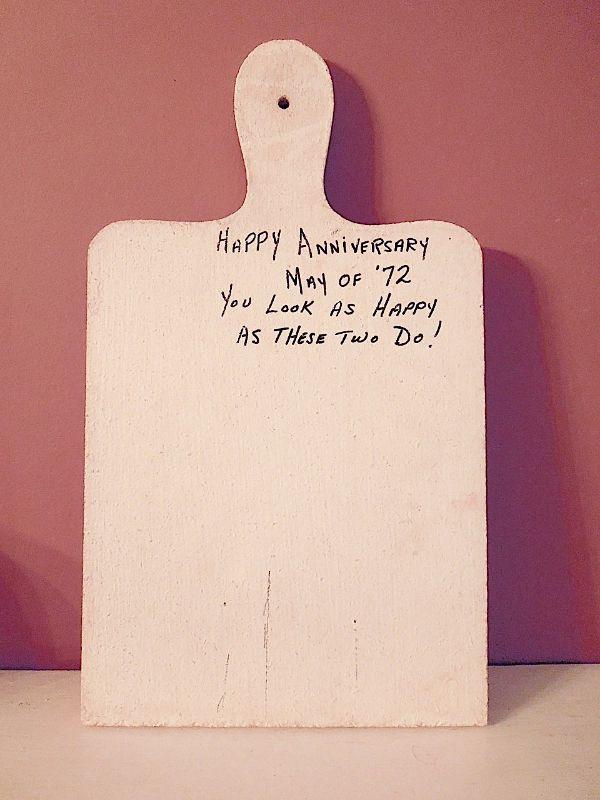 Happy Anniversary
May of '72
You Look As Happy
As These Two Do!